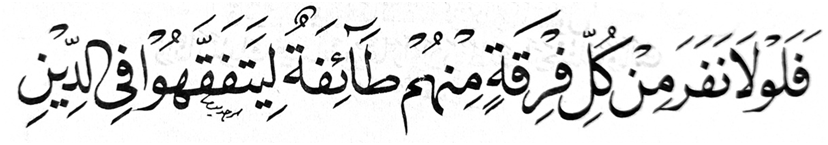 فَلَوْلَا نَفَرَ مِنْ كُلِّ فِرْقَةٍ مِنْهُمْ طَآئِفَةٌ لِيَتَفَقَّهُوْا فِي الدِّيْنِ